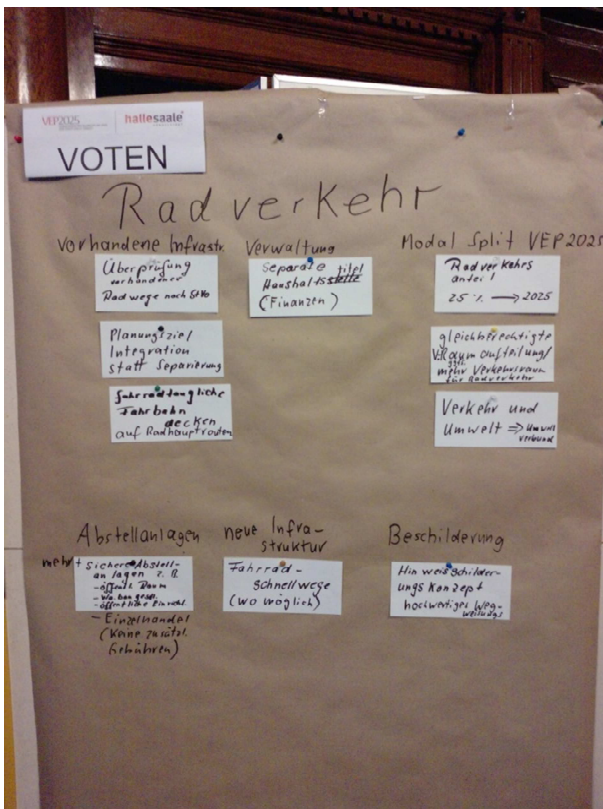 VEP2025 hallesaale
VOTEN
Radverkehr
vorhandene Infrastr.
Überprüfung
vorhandener
Radwege nach StVo
Planungsziel
Integration
statt Separierung
fahrradtaugliche
Fahrbahn
decken
auf Radhauptrouten
Verwaltung
Separate titel
Haushaltsstelle
(Finanzen)
Modal Split VEP 2025
Radverkehrs
anteil
25 % → 2025
gleichberechtigte
V.Raum aufteilung/
ggf.
mehr Verkehrsraum
für Radverkehr
Verkehr und
Umwelt ⇒ Umwelt
verbund
Abstellanlagen
mehr + Sichere Abstell-
anlagen z.B.
- öffentl. Raum
- Wohnungsgesell.
- öffentliche Einricht.
- Einzelhandel
(Keine zusätzl.
Gebühren)
neue Infra-
struktur
Fahrrad-
schnellwege
(wo möglich)
Beschilderung
Hinweisschilder-
ungs Konzept
hochwertiger Weg-
weisungs